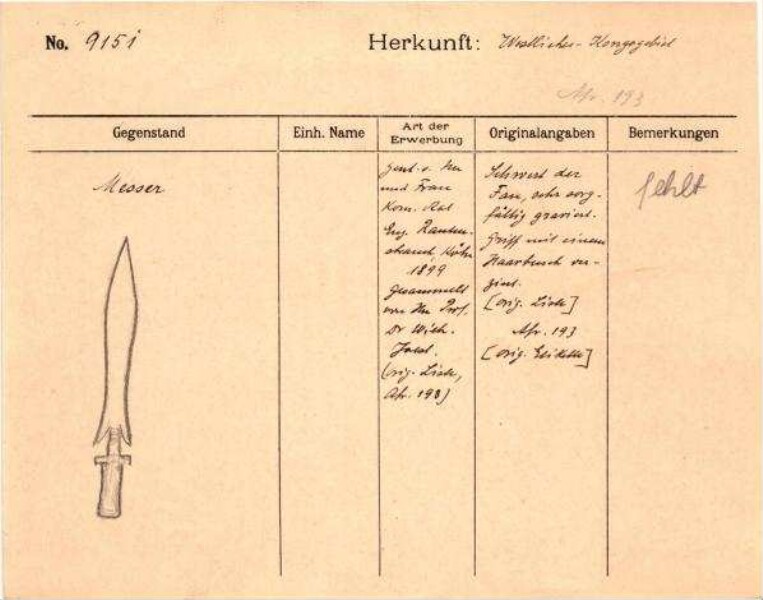 No. 9151
Herkunft: Westliches Kongogebiet
Afr. 193
Gegenstand
Einh. Name
Art der
Erwerbung
Originalangaben
Bemerkungen
Messer
und Frau
Kom. Rat
Eug. Rauten-
strauch, Köln
1899
Gesammelt
von Hn Prof.
Dr Wilh.
Joest.
(orig. Liste,
Afr. 193)
Schwert der
Fan, sehr sorg-
fältig graviert.
Griff mit einem
Haarbusch ver-
ziert.
[orig. Liste]
Afr. 193
[orig. Etikette]
fehlt